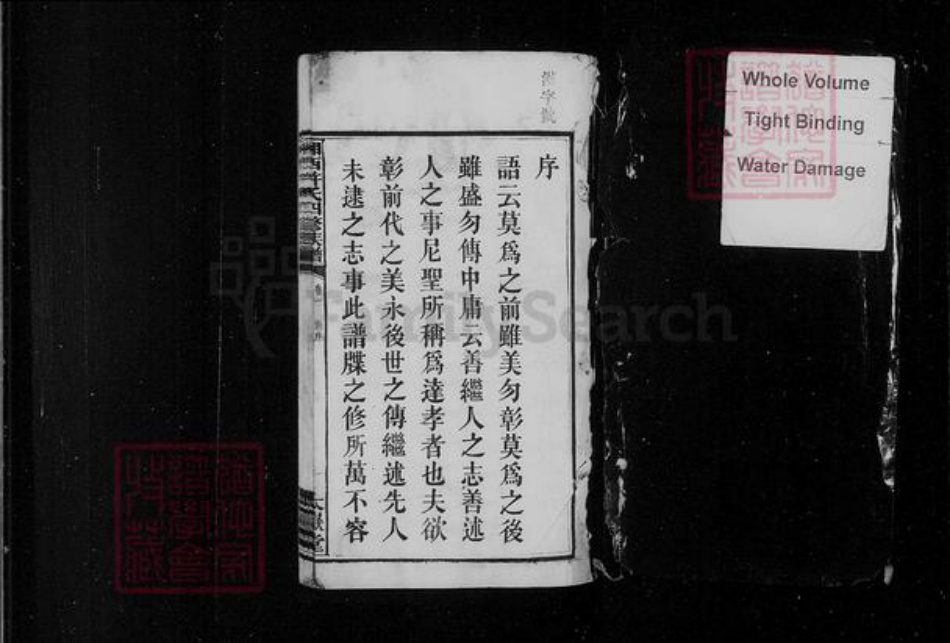 序
語云莫爲之前雖美勿彰莫爲之後
雖盛勿傳中庸云善繼人之志善述
人之事尼聖所稱爲達孝者也夫欲
彰前代之美永後世之傳繼述先人
未逮之志事此譜牒之修所萬不容
氏四修族譜
Whole Volume
Tight Binding
Water Damage
FamilySearch